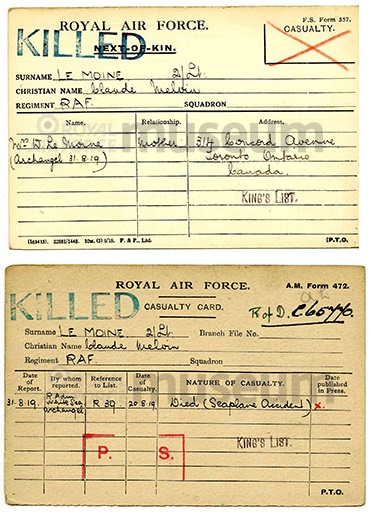 ROYAL AIR FORCE.
F.S. Form 557.
KILLED
CASUALTY.
NEXT-OF-KIN.
SURNAME LE MOINE. 2/Lt.
CHRISTIAN NAME Claude Melvin
REGIMENT RAF. SQUADRON
Name. Relationship. Address.
W. Le Moine Mother 314 Concord Avenue
(Archangel 31.8.19) Toronto Ontario
Canada.
KING'S LIST.
F. & P., Ltd. [P.T.O.
ROYAL AIR FORCE. A.M. Form 472.
KILLED
CASUALTY CARD. R of D.
Surname LE MOINE 2/Lt. Branch File No.
Christian Name Claude Melvin
Regiment RAF. Squadron
Date of Report. By whom reported. Reference to List. Date of Casualty. NATURE OF CASUALTY. Date published in Press.
31.8.19. Archangel R 39 20.8.19 Died (Seaplane Accident) x.
KING'S LIST.
P. S.
P.T.O.
museum
museum